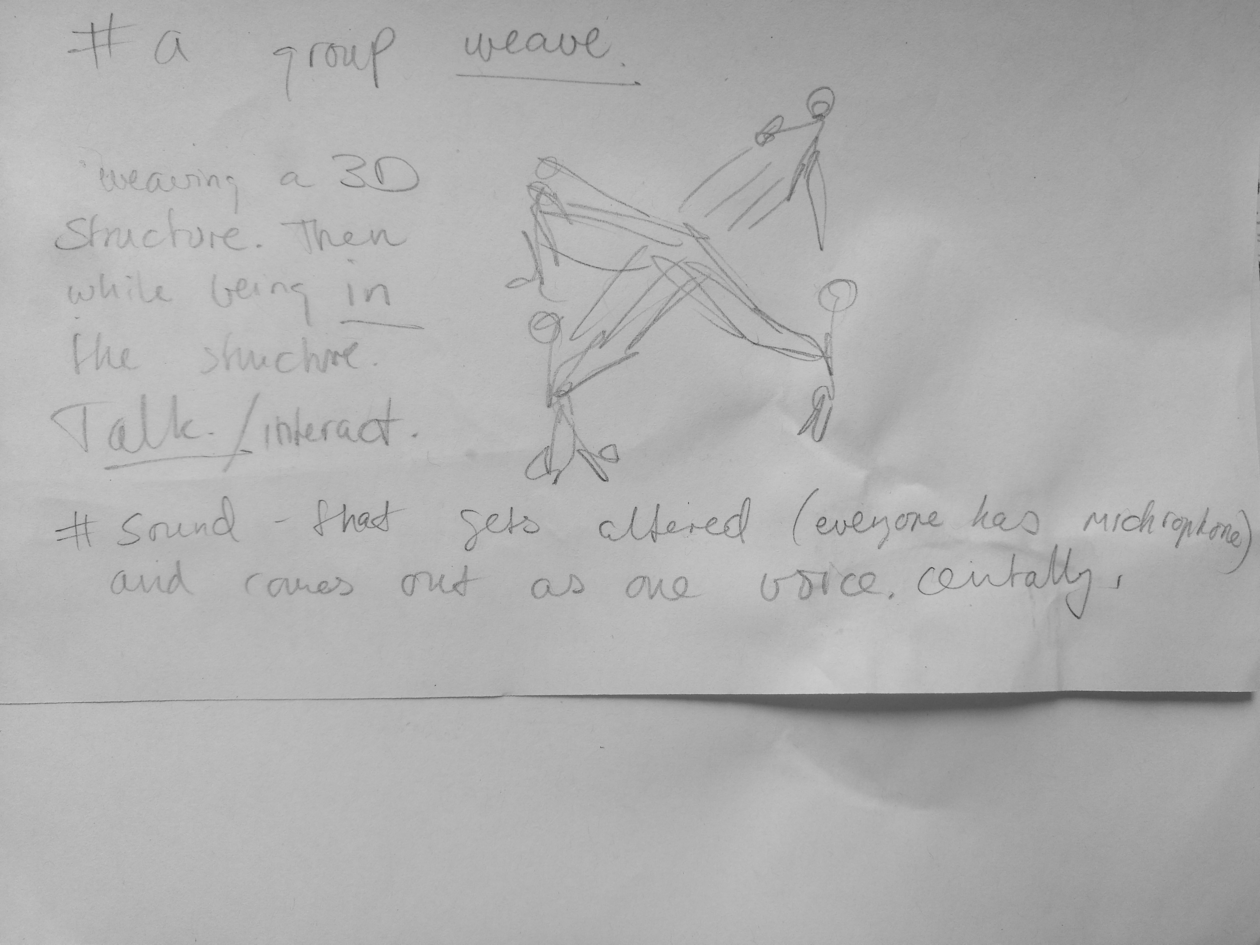 # a group weave.
weaving a 3D
Structure. Then
while being in
the structure.
Talk. / interact.
# Sound - that gets altered (everyone has michrophone)
and comes out as one voice. centally.